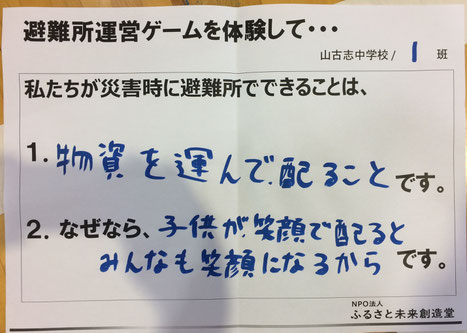 避難所運営ゲームを体験して・・・
山古志中学校 / 1 班
私たちが災害時に避難所でできることは、
1. 物資を運んで、配ること です。
2. なぜなら、子供が笑顔で配ると
みんなも笑顔になるから です。
NPO法人
ふるさと未来創造堂